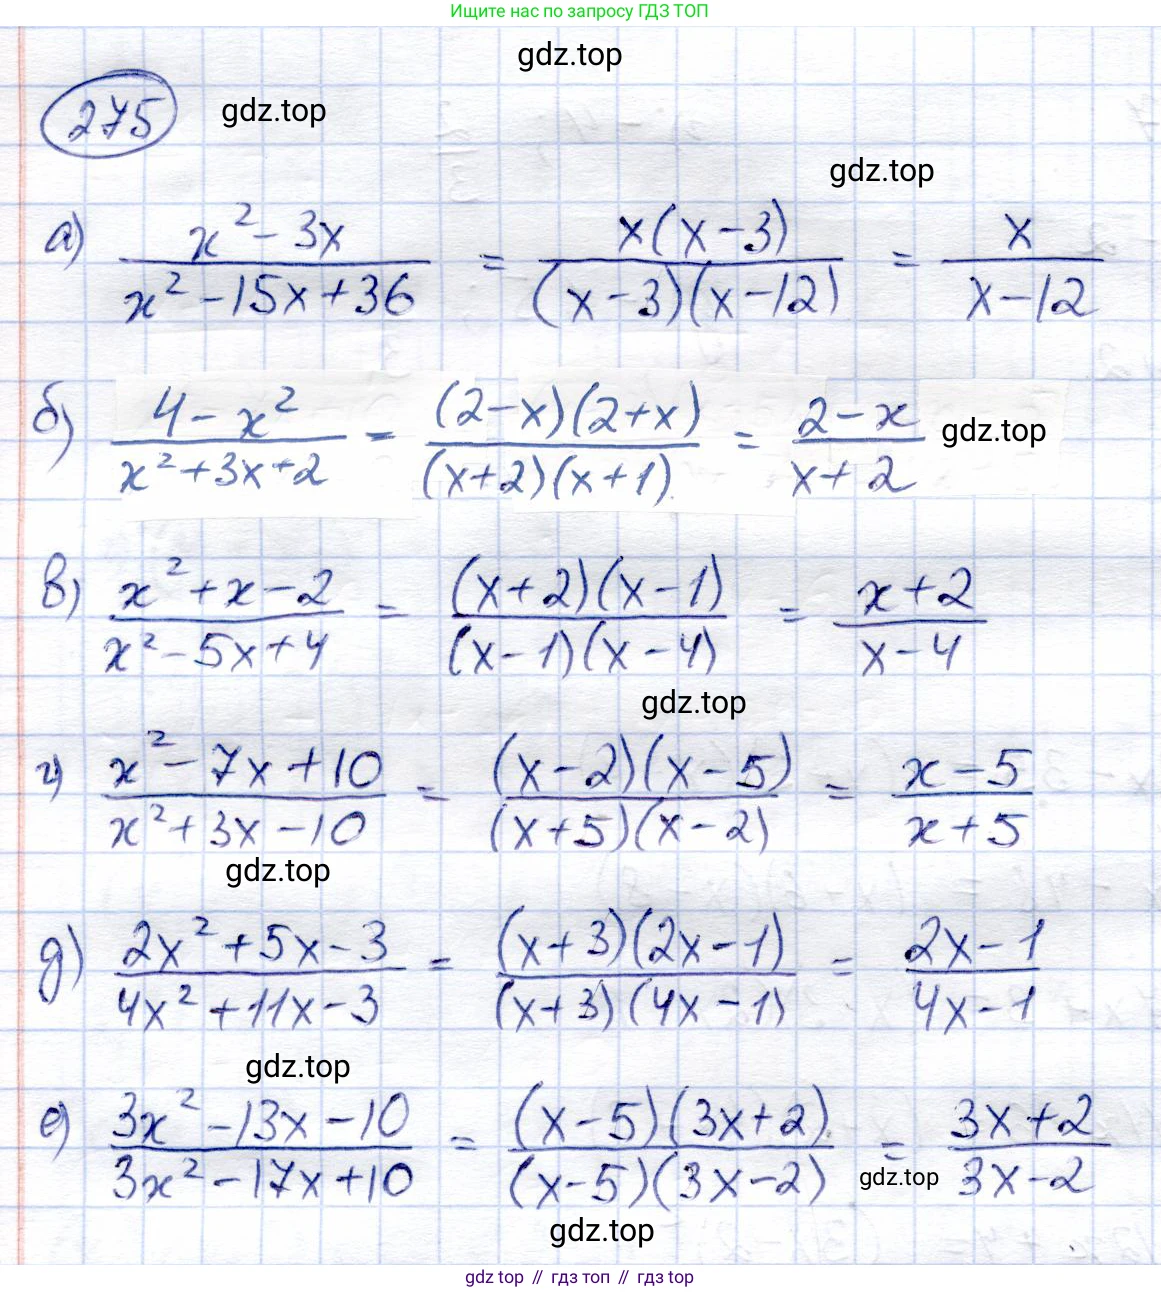 Ищите нас по запросу ГДЗ ТОП
gdz.top
275 gdz.top
gdz.top
а) (x² - 3x)/(x² - 15x + 36) = (x(x - 3))/((x - 3)(x - 12)) = x/(x - 12)
б) (4 - x²)/(x² + 3x + 2) = ((2 - x)(2 + x))/((x + 2)(x + 1)) = (2 - x)/(x + 2) gdz.top
в) (x² + x - 2)/(x² - 5x + 4) = ((x + 2)(x - 1))/((x - 1)(x - 4)) = (x + 2)/(x - 4)
gdz.top
г) (x² - 7x + 10)/(x² + 3x - 10) = ((x - 2)(x - 5))/((x + 5)(x - 2)) = (x - 5)/(x + 5)
gdz.top
д) (2x² + 5x - 3)/(4x² + 11x - 3) = ((x + 3)(2x - 1))/((x + 3)(4x - 1)) = (2x - 1)/(4x - 1)
gdz.top
е) (3x² - 13x - 10)/(3x² - 17x + 10) = ((x - 5)(3x + 2))/((x - 5)(3x - 2)) = (3x + 2)/(3x - 2)
gdz.top
gdz.top
gdz top // гдз топ // gdz top